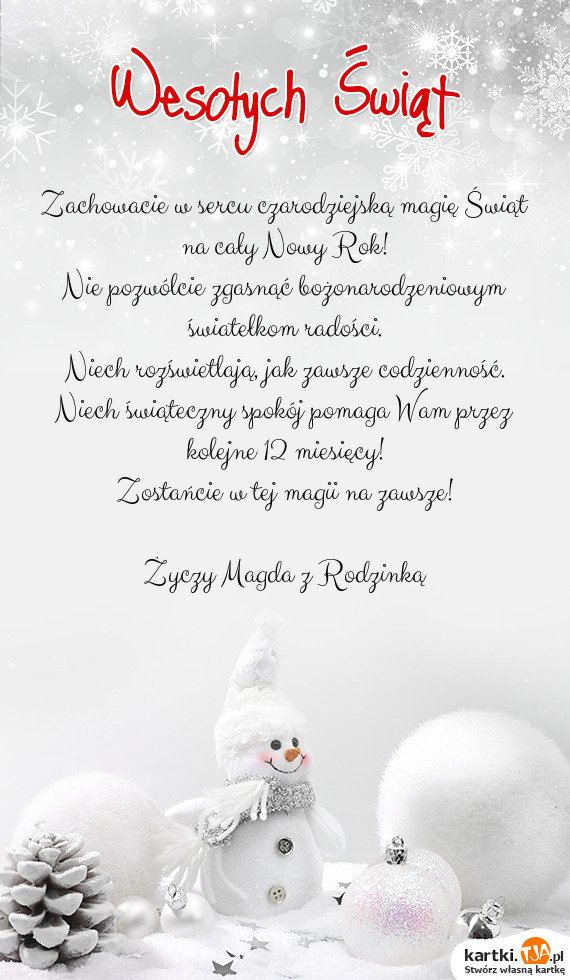 Wesołych Świąt
Zachowacie w sercu czarodziejską magię Świąt
na cały Nowy Rok!
Nie pozwólcie zgasnąć bożonarodzeniowym
światełkom radości.
Niech rozświetlają, jak zawsze codzienność.
Niech świąteczny spokój pomaga Wam przez
kolejne 12 miesięcy!
Zostańcie w tej magii na zawsze!
Życzy Magda z Rodzinką
kartki.TJA.pl
Stwórz własną kartkę